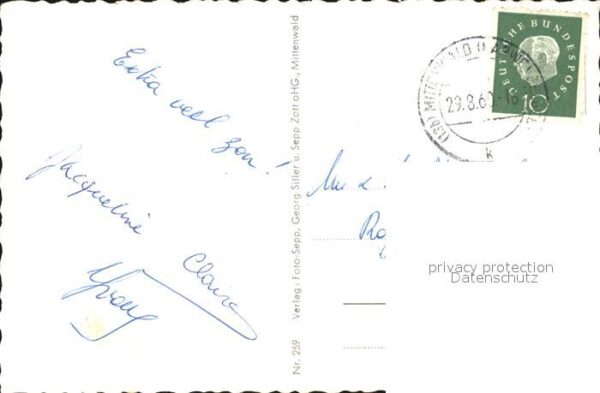 Extra veel zon!
Jacqueline
Claire
Yvons
Nr. 259 Verlag: Foto-Sepp, Georg Siller u. Sepp Zott oHG., Mittenwald
DEUTSCHE BUNDESPOST
10
(13b) MITTENWALD
29.8.60.-16
k
privacy protection
Datenschutz